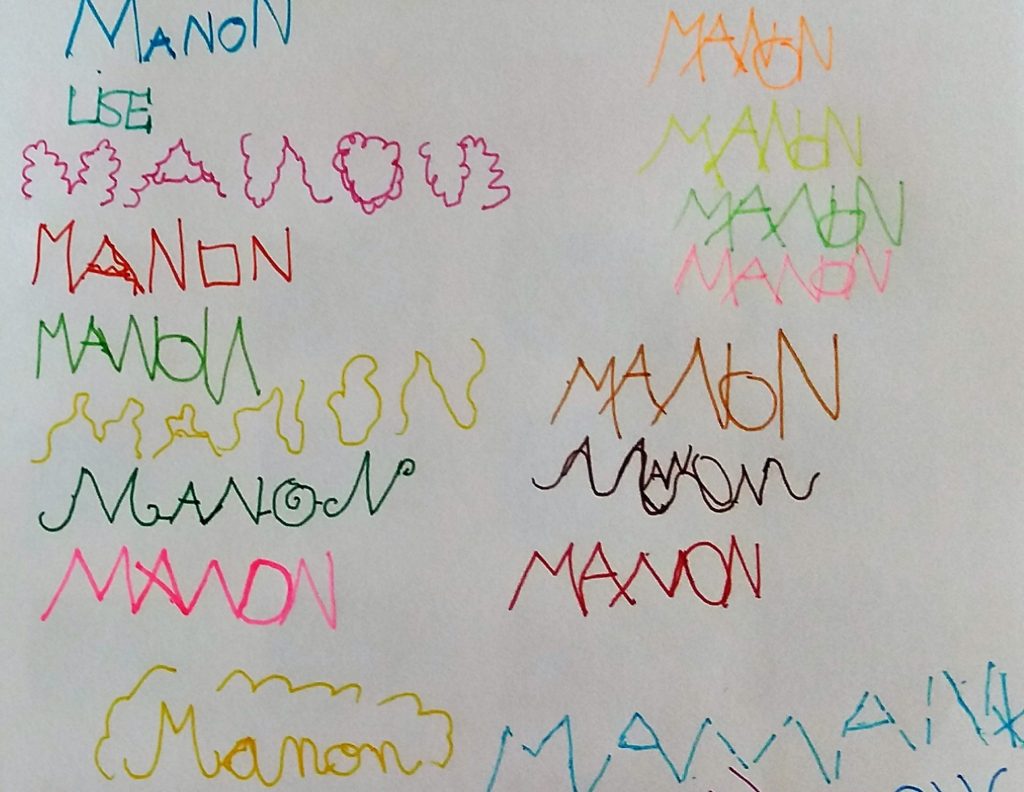 MANON
LISE
MANON
MANON
MANON
MANON
MANON
MANON
Manon
MANON
MANON
MANON
MANON
MANON
MANON
MANON
MAMAN